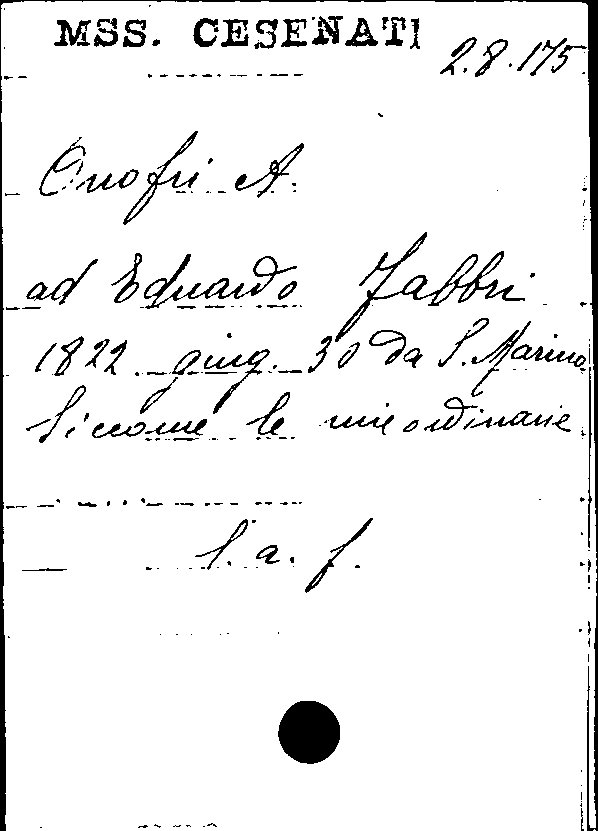 MSS. CESENATI
2.8.175
Onofri A.
ad Eduardo Fabbri
1822 giug. 30 da S. Marino
Siccome le mie ordinarie
l. a. f.